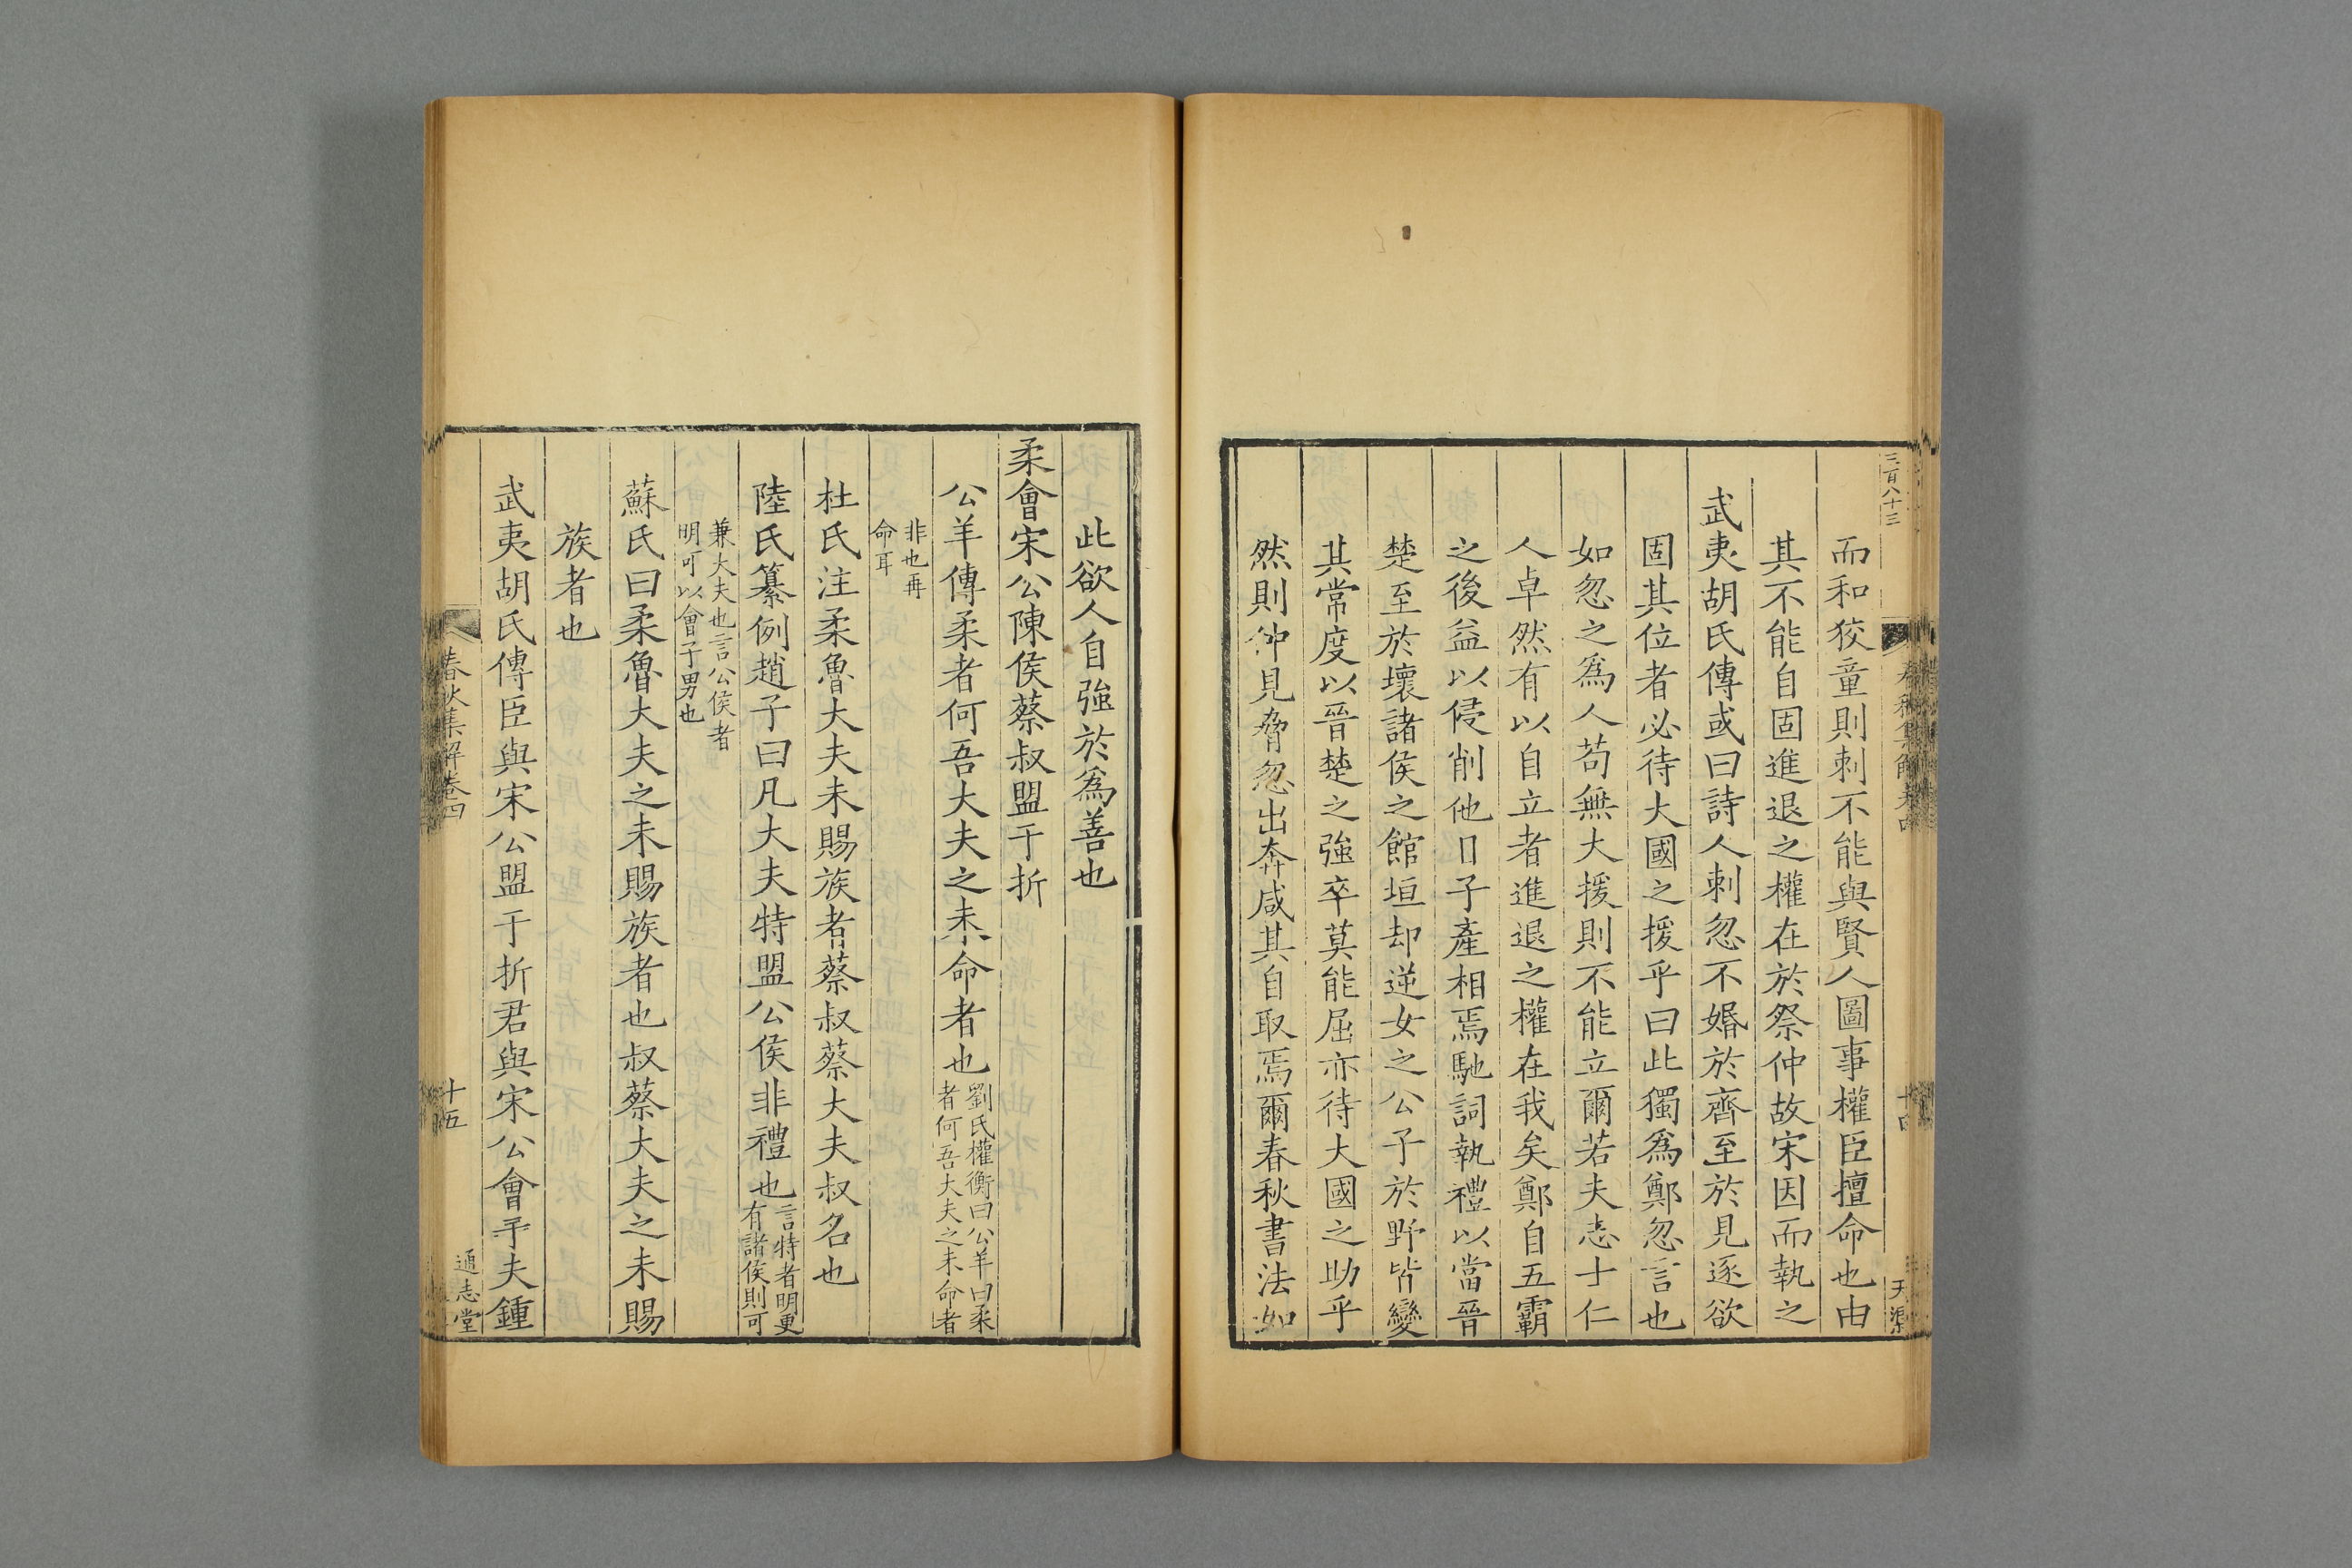 三百八十三
而和狡童則刺不能與賢人圖事權臣擅命也由
其不能自固進退之權在於祭仲故宋因而執之
武夷胡氏傳或曰詩人刺忽不婚於齊至於見逐欲
固其位者必待大國之援乎曰此獨爲鄭忽言也
如忽之爲人苟無大援則不能立爾若夫志士仁
人卓然有以自立者進退之權在我矣鄭自五霸
之後益以侵削他日子產相焉馳詞執禮以當晉
楚至於壞諸侯之館垣却逆女之公子於野皆變
其常度以晉楚之強卒莫能屈亦待大國之助乎
然則仲見脅忽出奔咸其自取焉爾春秋書法如
此欲人自強於爲善也
柔會宋公陳侯蔡叔盟于折
公羊傳柔者何吾大夫之未命者也劉氏權衡曰公羊曰柔
者何吾大夫之未命者
非也再
命耳
杜氏注柔魯大夫未賜族者蔡叔蔡大夫叔名也
陸氏纂例趙子曰凡大夫特盟公侯非禮也言特者明更
有諸侯則可
兼大夫也言公侯者
明可以會子男也
蘇氏曰柔魯大夫之未賜族者也叔蔡大夫之未賜
族者也
武夷胡氏傳臣與宋公盟于折君與宋公會于夫鍾
春秋集解卷四
十五
通志堂